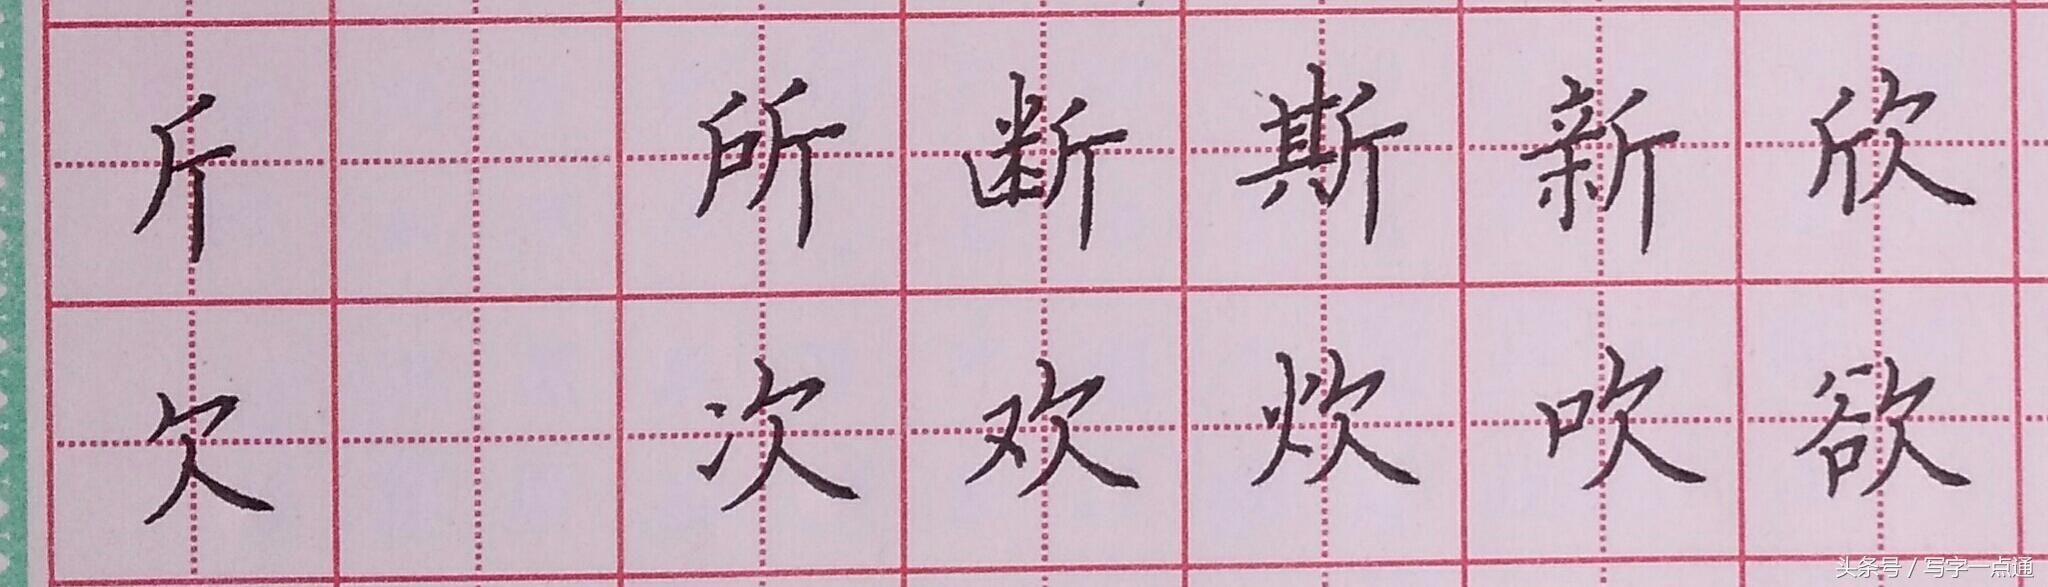 斤 所 断 斯 新 欣
欠 次 欢 炊 吹 欲
头条号 / 写字一点通